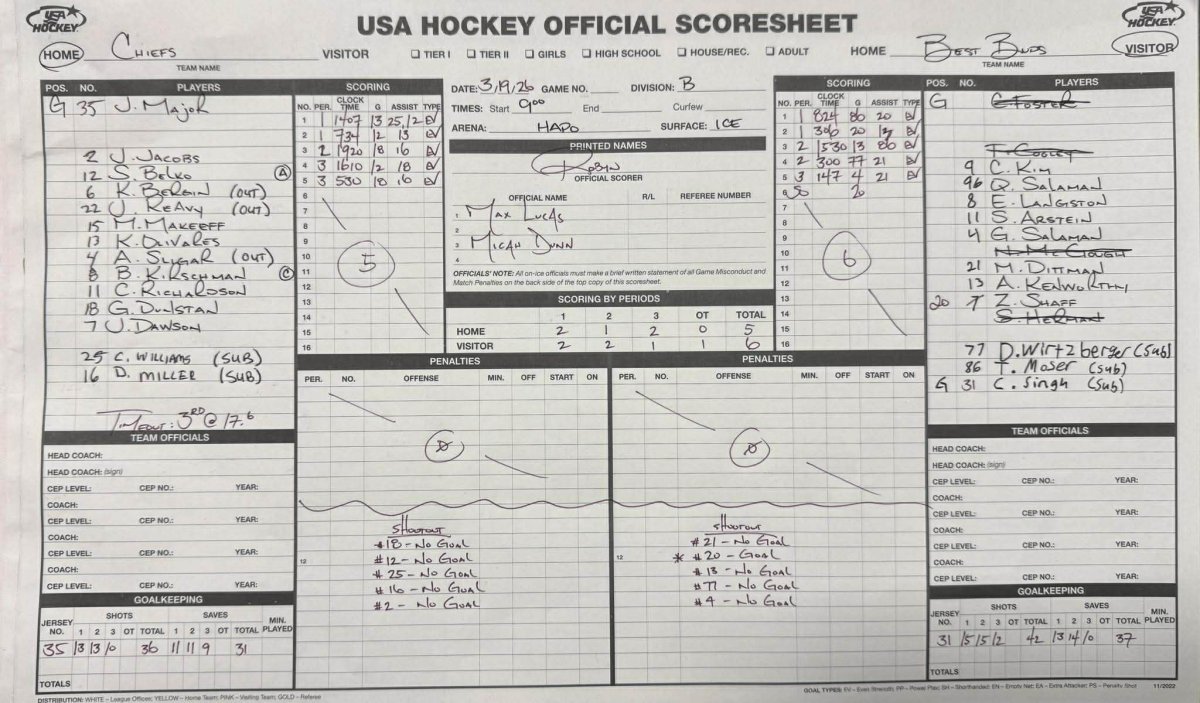 USA HOCKEY
USA HOCKEY OFFICIAL SCORESHEET
USA HOCKEY
HOME CHIEFS VISITOR ☐ TIER I ☐ TIER II ☐ GIRLS ☐ HIGH SCHOOL ☐ HOUSE/REC. ☐ ADULT HOME BEST BUDS VISITOR
TEAM NAME TEAM NAME
POS. NO. PLAYERS
G 35 J. MAJOR
2 J. JACOBS
12 S. BELKO (A)
6 K. BERGIN (OUT)
22 J. REAVY (OUT)
15 M. MAKEEFF
13 K. OLIVARES
4 A. SLIGAR (OUT)
8 B. KIRSCHMAN (C)
11 C. RICHARDSON
18 G. DUNSTAN
7 J. DAWSON
25 C. WILLIAMS (SUB)
16 D. MILLER (SUB)
TIMEOUT: 3RD @ 17.6
SCORING
NO. PER. CLOCK TIME G ASSIST TYPE
1 1 1407 13 25, 12 EV
2 1 734 12 13 EV
3 2 1920 18 16 EV
4 3 1610 12 18 EV
5 3 530 18 16 EV
6
7
8
9
10
11
12
13
14
15
16
5
DATE: 3/19/26 GAME NO. DIVISION: B
TIMES: Start 9:00 End Curfew
ARENA: HAPO SURFACE: ICE
PRINTED NAMES
ROBYN
OFFICIAL SCORER
OFFICIAL NAME R/L REFEREE NUMBER
1 MAX LUCAS
2
3 MICAH DUNN
4
OFFICIALS' NOTE: All on-ice officials must make a brief written statement of all Game Misconduct and
Match Penalties on the back side of the top copy of this scoresheet.
SCORING BY PERIODS
1 2 3 OT TOTAL
HOME 2 1 2 0 5
VISITOR 2 2 1 1 6
SCORING
NO. PER. CLOCK TIME G ASSIST TYPE
1 1 824 86 20 EV
2 1 306 20 13 EV
3 2 1530 13 86 EV
4 2 300 77 21 EV
5 3 147 4 21 EV
6 SO 20
7
8
9
10
11
12
13
14
15
16
6
POS. NO. PLAYERS
G C FOSTER
T. COOLEY
9 C. KIM
96 Q. SALAMAN
8 E. LANGSTON
11 S. ARSTEIN
4 G. SALAMAN
N. MCGOUGH
21 M. DITTMAN
13 A. KENWORTHY
20 7 Z. SHAFF
S. HERMAN
77 D. Wirtzberger (Sub)
86 T. Moser (Sub)
G 31 C. Singh (Sub)
PENALTIES
PER. NO. OFFENSE MIN. OFF START ON
0
12
SHOOTOUT
#18 - NO GOAL
#12 - NO GOAL
#25 - NO GOAL
#16 - NO GOAL
#2 - NO GOAL
PENALTIES
PER. NO. OFFENSE MIN. OFF START ON
0
12
SHOOTOUT
#21 - NO GOAL
* #20 - GOAL
#13 - NO GOAL
#77 - NO GOAL
#4 - NO GOAL
TEAM OFFICIALS
HEAD COACH:
HEAD COACH: (sign)
CEP LEVEL: CEP NO.: YEAR:
COACH:
CEP LEVEL: CEP NO.: YEAR:
COACH:
CEP LEVEL: CEP NO.: YEAR:
COACH:
CEP LEVEL: CEP NO.: YEAR:
GOALKEEPING
SHOTS SAVES
JERSEY NO. 1 2 3 OT TOTAL 1 2 3 OT TOTAL MIN. PLAYED
35 13 13 10 36 11 11 9 31
TOTALS
TEAM OFFICIALS
HEAD COACH:
HEAD COACH: (sign)
CEP LEVEL: CEP NO.: YEAR:
COACH:
CEP LEVEL: CEP NO.: YEAR:
COACH:
CEP LEVEL: CEP NO.: YEAR:
COACH:
CEP LEVEL: CEP NO.: YEAR:
GOALKEEPING
SHOTS SAVES
JERSEY NO. 1 2 3 OT TOTAL 1 2 3 OT TOTAL MIN. PLAYED
31 15 15 12 42 13 14 10 37
TOTALS
DISTRIBUTION: WHITE – League Officer; YELLOW – Home Team; PINK – Visiting Team; GOLD – Referee
GOAL TYPES: EV – Even Strength; PP – Power Play; SH – Shorthanded; EN – Empty Net; EA – Extra Attacker; PS – Penalty Shot 11/2022